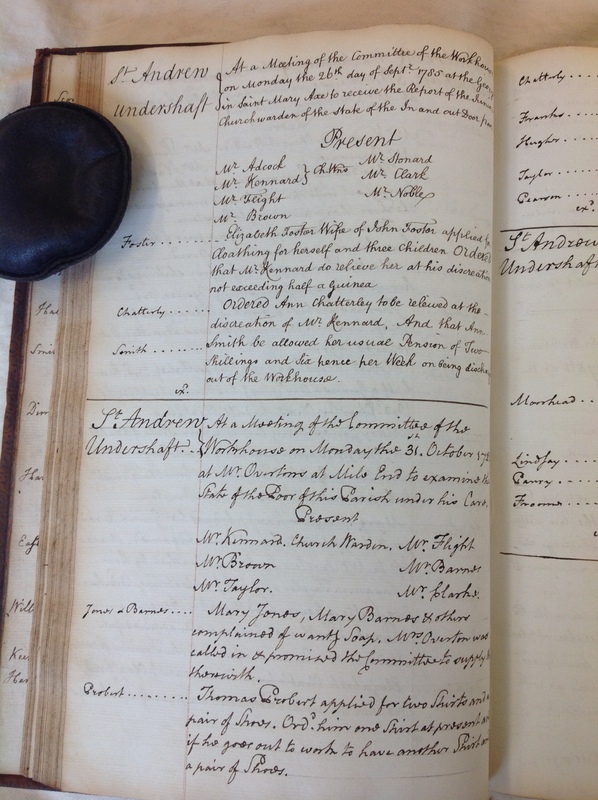 St. Andrew
Undershaft
At a Meeting of the Committee of the Workhouse
on Monday the 26th day of Septr. 1785 at the
in Saint Mary Axe to receive the Report of the
Churchwarden of the State of the In and out Door
Present
Mr. Adcock
Mr. Kennard } Ch:Wns
Mr. Flight
Mr. Brown
Mr. Stonard
Mr. Clark
Mr. Noble
Foster ........ Elizabeth Foster Wife of John Foster applied for
Cloathing for herself and three Children Ordered
that Mr. Kennard do relieve her at his discreation
not exceeding half a Guinea
Chatterly ...... Ordered Ann Chatterley to be releived at the
discreation of Mr. Kennard, And that Ann
Smith ........ Smith be allowed her usual Pension of Two
Shillings and Six pence per Week on being
out of the Workhouse.
exd.
St. Andrew
Undershaft.
At a Meeting of the Committee of the
Workhouse on Monday the 31st. October
at Mr. Overtons at Mile End to examine the
State of the Poor of this Parish under his Care.
Present
Mr. Kennard. Church Warden. Mr. Flight
Mr. Brown Mr. Barnes
Mr. Taylor. Mr. Clarke.
Jones & Barnes .... Mary Jones, Mary Barnes & others
complained of wantg. Soap. Mrs. Overton was
called in & promised the Committee to supply
therwith.
Probert ......... Thomas Probert applied for two Shirts and a
pair of Shoes. Ordd. him one Shirt at present
if he goes out to work to have another Shirt or
a pair of Shoes.
Chatterly ....
Franks ....
Hughes ....
Taylor ....
Pearson ....
exd.
St. Andrew
Undershaft
Moorhead ....
Lindsay ....
Ha